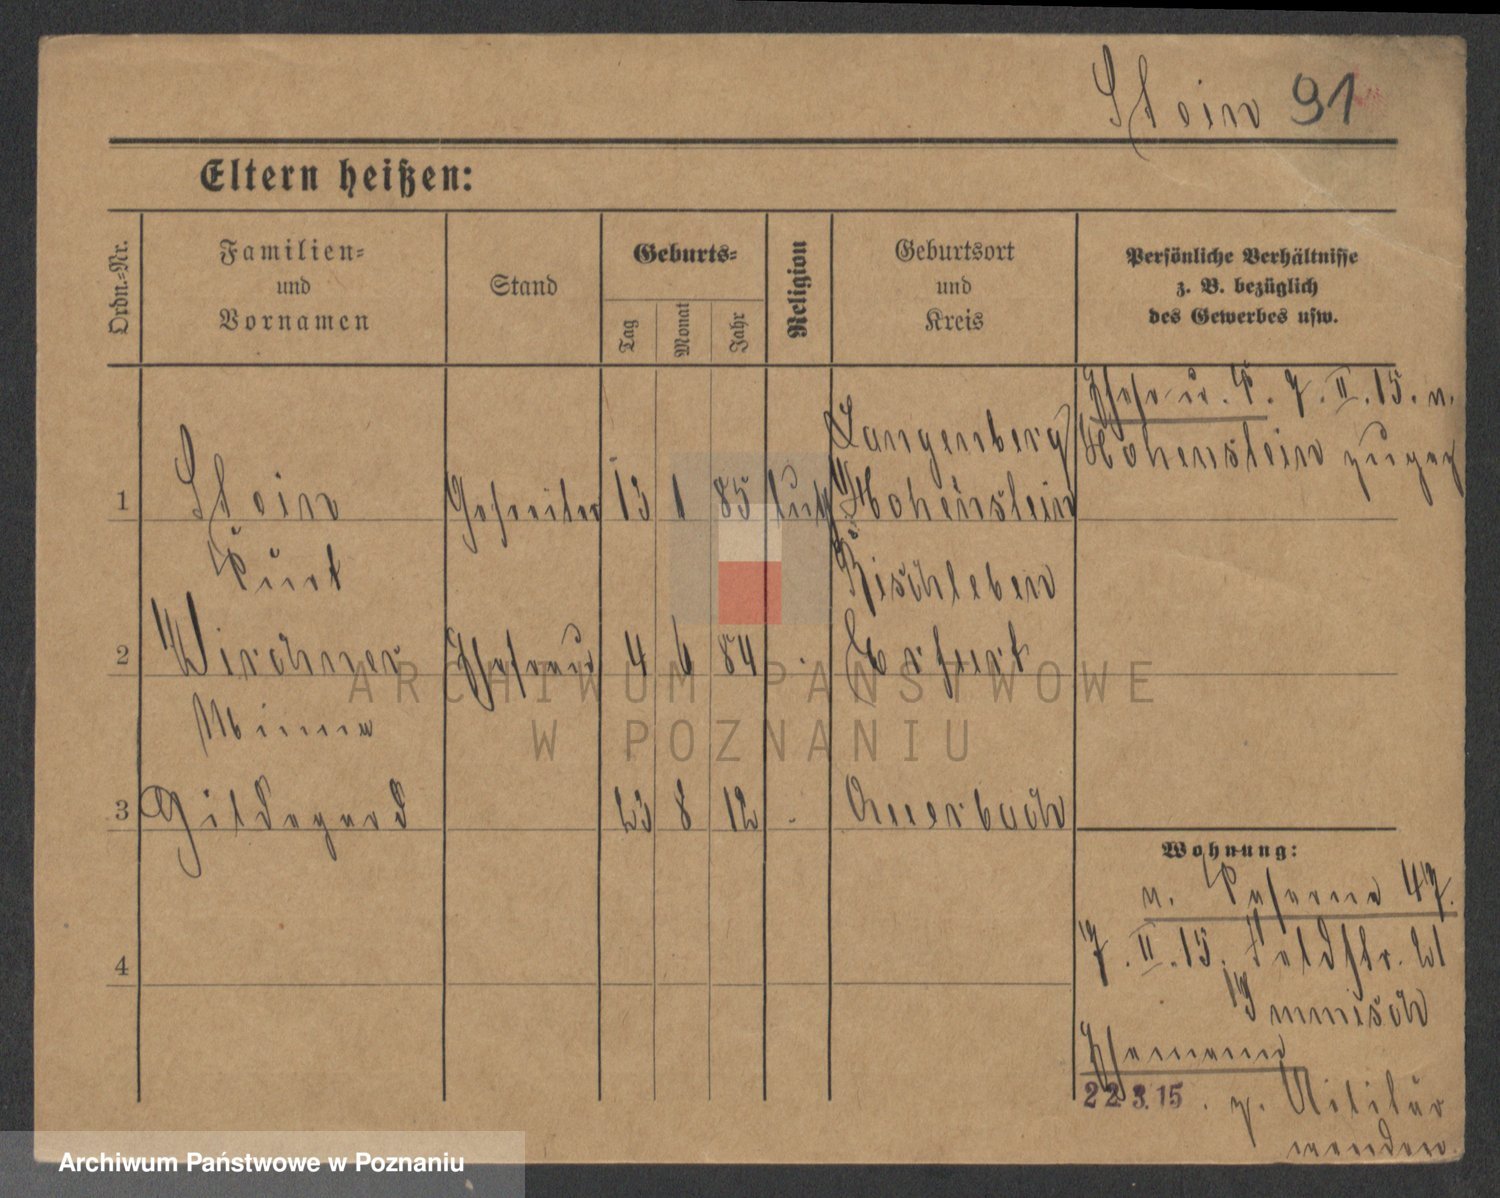 Stein 91
Eltern heißen:
Ordn.-Nr.
Familien-
und
Vornamen
Stand
Geburts-
Tag
Monat
Jahr
Religion
Geburtsort
und
Kreis
Persönliche Verhältnisse
z. B. bezüglich
des Gewerbes usw.
Ehefr u. K. 7. II. 15. v.
Hohenstein zugez
1 Stein Gefreiter 13 1 85 luth Langenberg
Hohenstein
Kurt
2 Kirchner Ehefrau 4 6 84 Bischleben
Erfurt
Minna
3 Hildegard 23 8 12 Auerbach
4
Wohnung:
n. Kaserne 47.
7. II. 15. Feldstr. 21
Immisch
Ehemann
22.3.15. z. Militär
ARCHIWUM PAŃSTWOWE
W POZNANIU
Archiwum Państwowe w Poznaniu